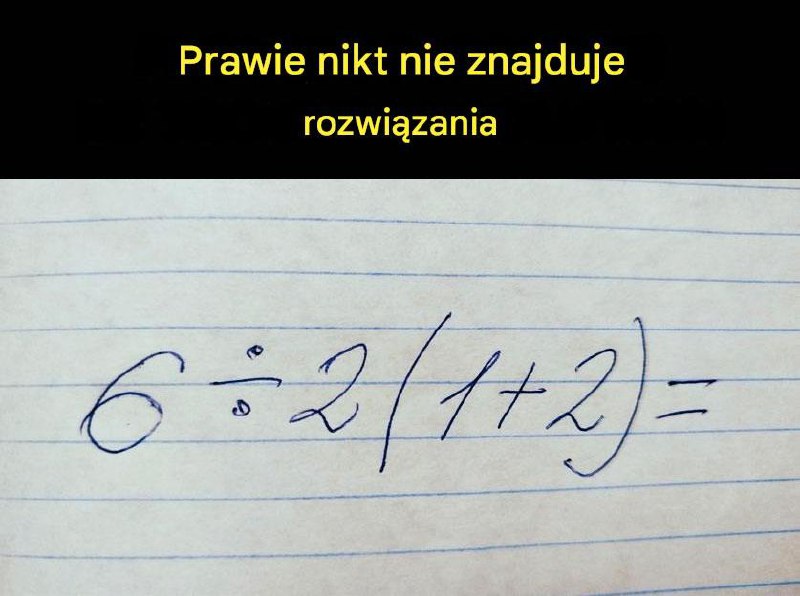 Prawie nikt nie znajduje
rozwiązania
6 ÷ 2 ( 1 + 2 ) =